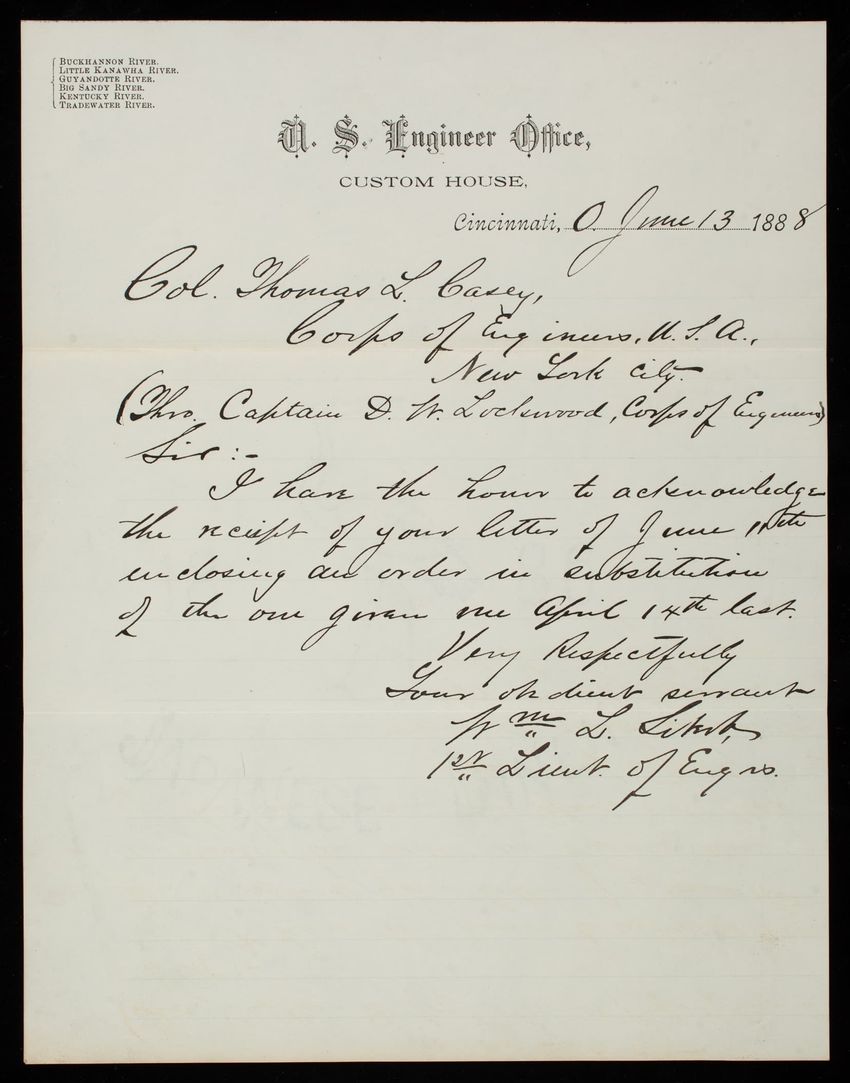 BUCKHANNON RIVER.
LITTLE KANAWHA RIVER.
GUYANDOTTE RIVER.
BIG SANDY RIVER.
KENTUCKY RIVER.
TRADEWATER RIVER.
U. S. Engineer Office,
CUSTOM HOUSE,
Cincinnati, O. June 13 1888
Col. Thomas L. Casey,
Corps of Engineers, U.S.A.,
New York City.
(Thro. Captain D. W. Lockwood, Corps of Engineers)
Sir:-
I have the honor to acknowledge
the receipt of your letter of June 11th
enclosing an order in substitution
of the one given me April 14th last.
Very Respectfully
Your obedient servant
Wm L. Sibert,
1st Lieut. of Engrs.